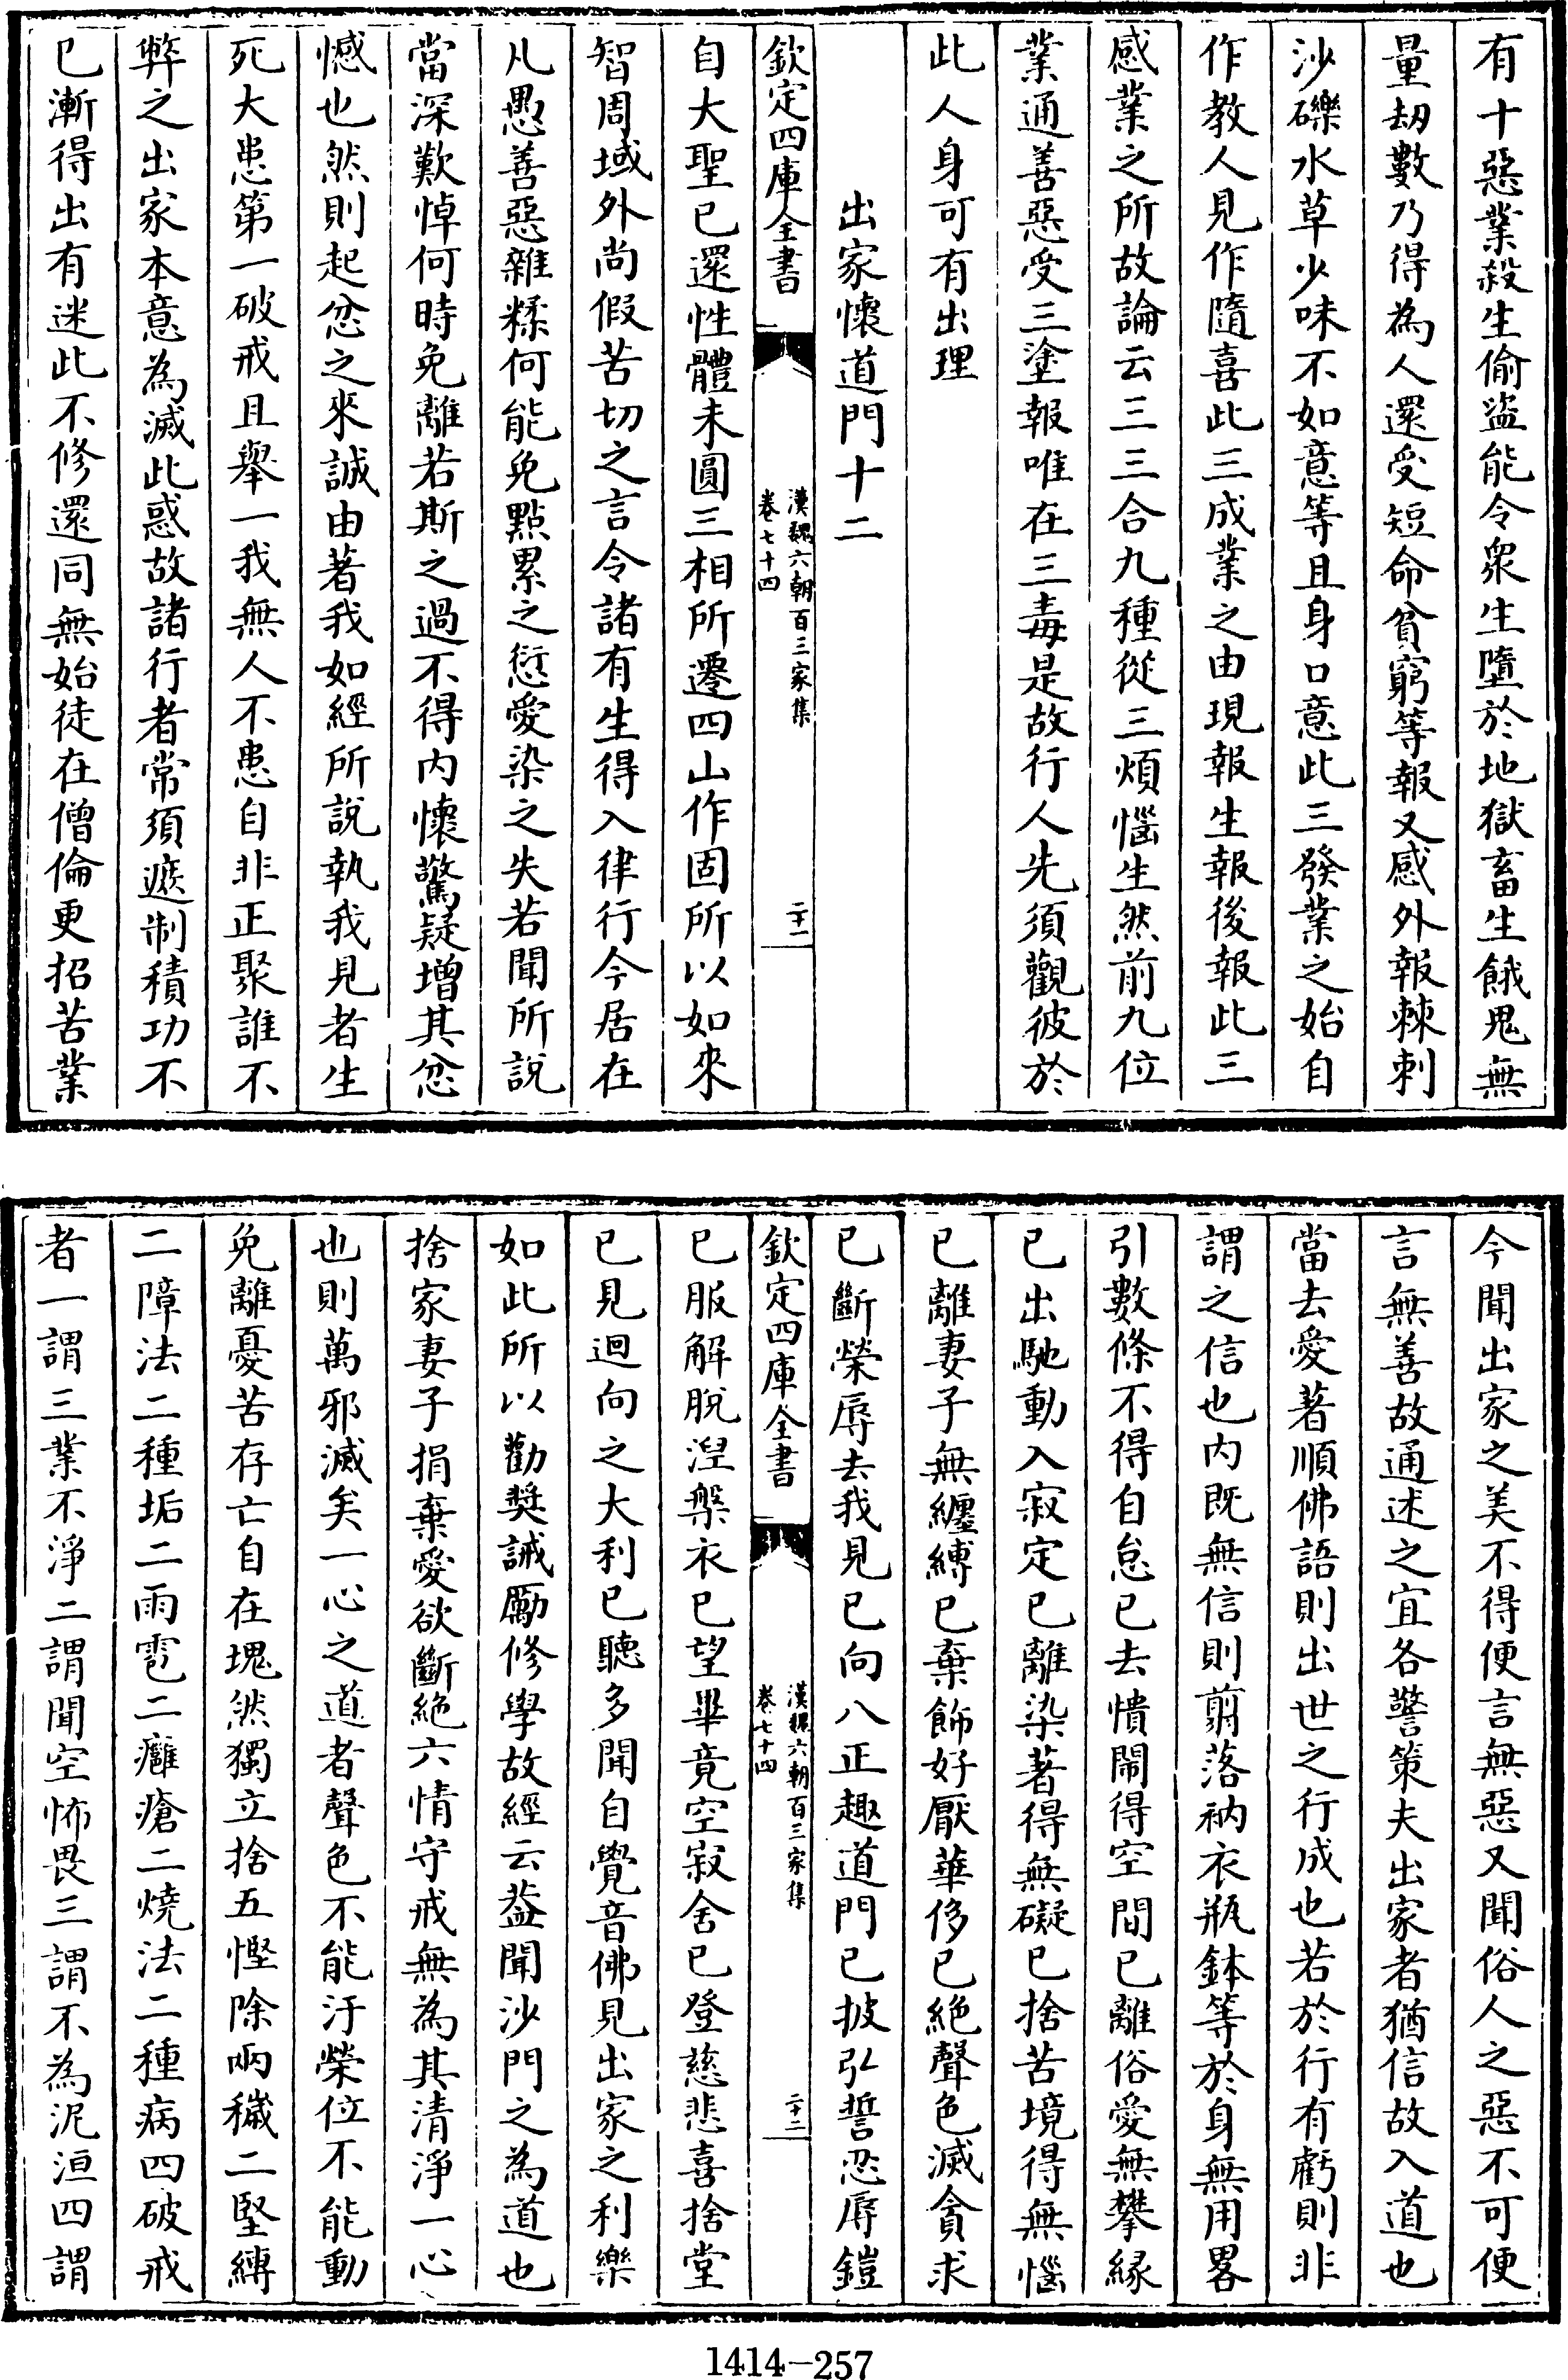 有十惡業殺生偷盜能令衆生墮於地獄畜生餓鬼無
量劫數乃得為人還受短命貧窮等報又感外報棘刺
沙礫水草少味不如意等且身口意此三發業之始自
作教人見作隨喜此三成業之由現報生報後報此三
感業之所故論云三三合九種從三煩惱生然前九位
業通善惡受三塗報唯在三毒是故行人先須觀彼於
此人身可有出理
出家懷道門十二
欽定四庫全書
漢魏六朝百三家集
卷七十四
二十一
自大聖已還性體未圓三相所遷四山作固所以如來
智周域外尚假苦切之言令諸有生得入律行今居在
凡愚善惡雜糅何能免點累之愆愛染之失若聞所說
當深歎悼何時免離若斯之過不得內懷驚疑增其忿
憾也然則起忿之來誠由著我如經所說執我見者生
死大患第一破戒且舉一我無人不患自非正聚誰不
弊之出家本意為滅此惑故諸行者常須遮制積功不
已漸得出有迷此不修還同無始徒在僧倫更招苦業
今聞出家之美不得便言無惡又聞俗人之惡不可便
言無善故通述之宜各警策夫出家者猶信故入道也
當去愛著順佛語則出世之行成也若於行有虧則非
謂之信也內既無信則剪落衲衣瓶鉢等於身無用畧
引數條不得自怠已去憒鬧得空間已離俗愛無攀緣
已出馳動入寂定已離染著得無礙已捨苦境得無惱
已離妻子無纏縛已棄飾好厭華侈已絕聲色滅貪求
已斷榮辱去我見已向八正趣道門已披弘誓忍辱鎧
欽定四庫全書
漢魏六朝百三家集
卷七十四
二十二
已服解脫湼槃衣已望畢竟空寂舍已登慈悲喜捨堂
已見迴向之大利已聽多聞自覺音佛見出家之利樂
如此所以勸奬誡勵修學故經云葢聞沙門之為道也
捨家妻子捐棄愛欲斷絕六情守戒無為其清淨一心
也則萬邪滅矣一心之道者聲色不能汙榮位不能動
免離憂苦存亡自在塊然獨立捨五慳除兩穢二堅縛
二障法二種垢二雨雹二癰瘡二燒法二種病四破戒
者一謂三業不淨二謂聞空怖畏三謂不為泥洹四謂
1414—257